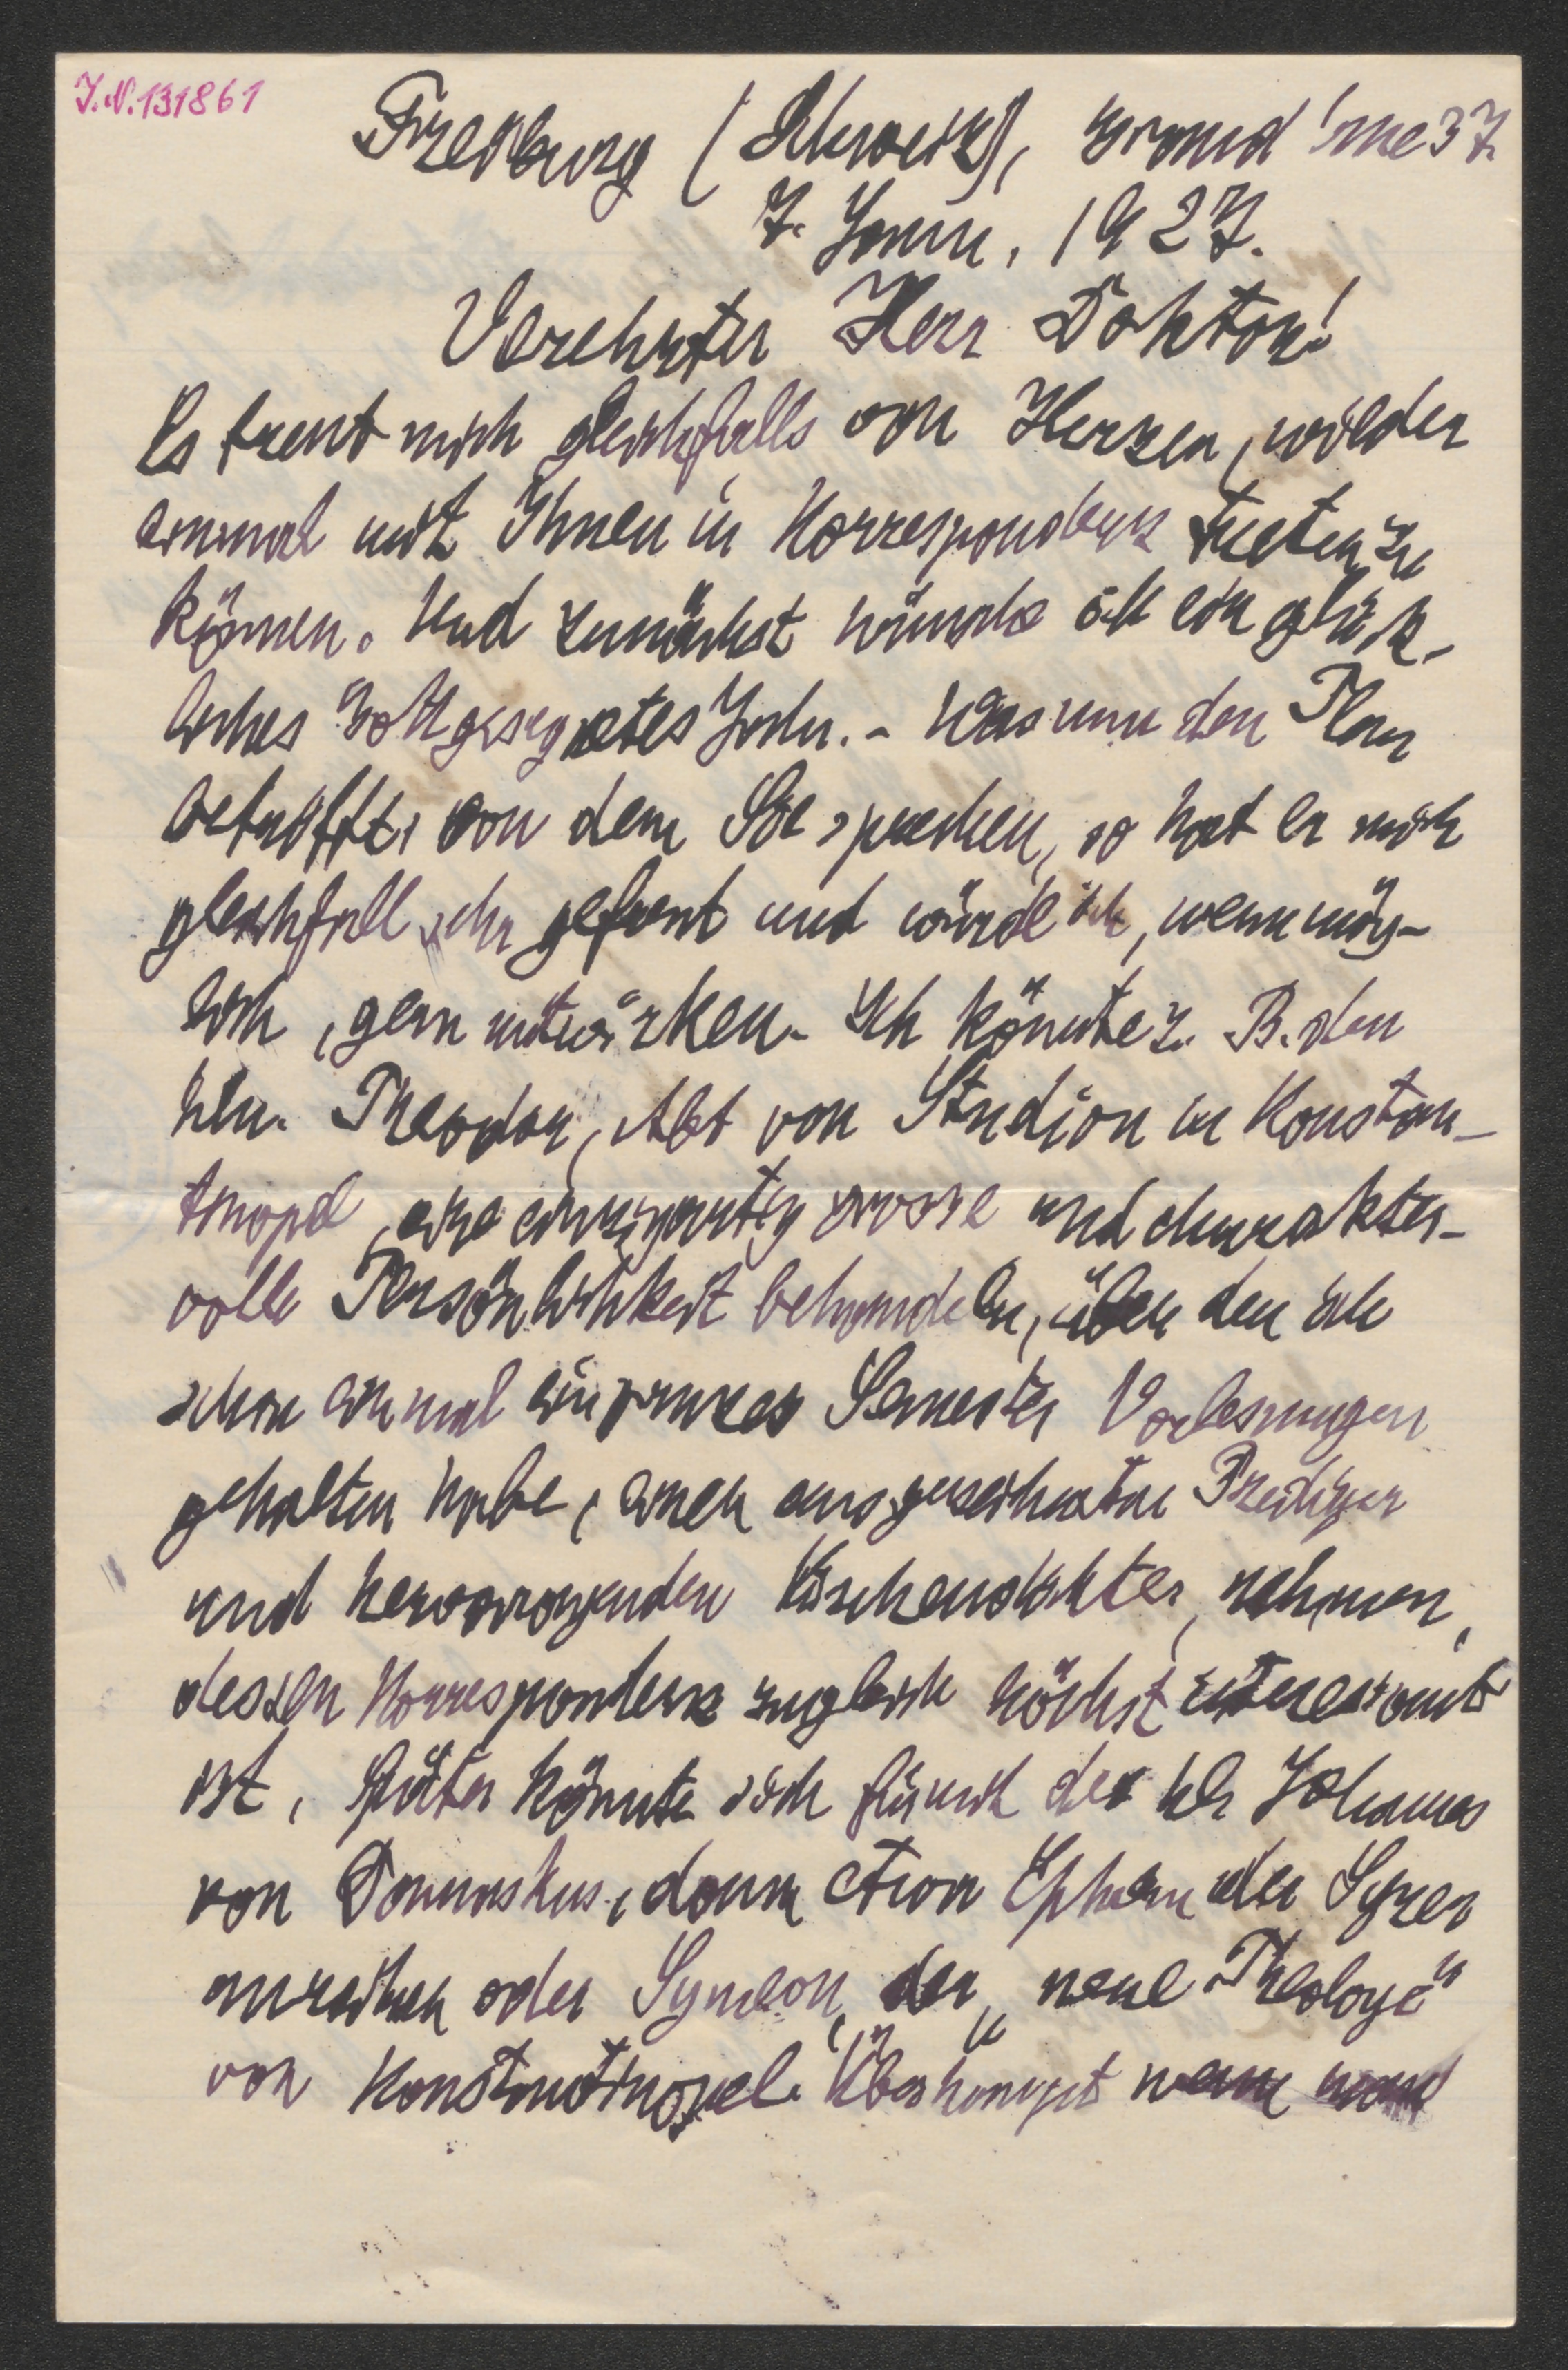 J.N.131861
Freiburg (Schweiz), Grand'rue 37.
7. Jann. 1927.
Verehrter Herr Doktor!
Es freut mich gleichfalls von Herzen, wieder
einmal mit Ihnen in Korrespondenz treten zu
können. Und zunächst wünsche ich ein glück-
liches Gottgesegnetes Jahr. - Was nun den Plan
betrifft, von dem Sie sprechen, so hat er mich
gleichfall sehr gefreut und würde ich, wenn mög-
lich, gern mitwirken. Ich könnte z. B. den
hln. Theodor, Abt von Studion in Konstan-
tinopel, eine einzigartig grosse und charakter-
volle Persönlichkeit behandeln, über den ich
schon einmal ein ganzes Semester Vorlesungen
gehalten habe, einen ausgezeichneten Prediger
und hervorragenden Kirchendichter, nehmen,
dessen Korrespondenz zugleich höchst interessant
ist, später könnte sich für mich der hl. Johannes
von Damaskus, dann etwa Ephräm der Syrer
anreihen oder Symeon, der „neue Theologe"
von Konstantinopel. Überhaupt wenn man